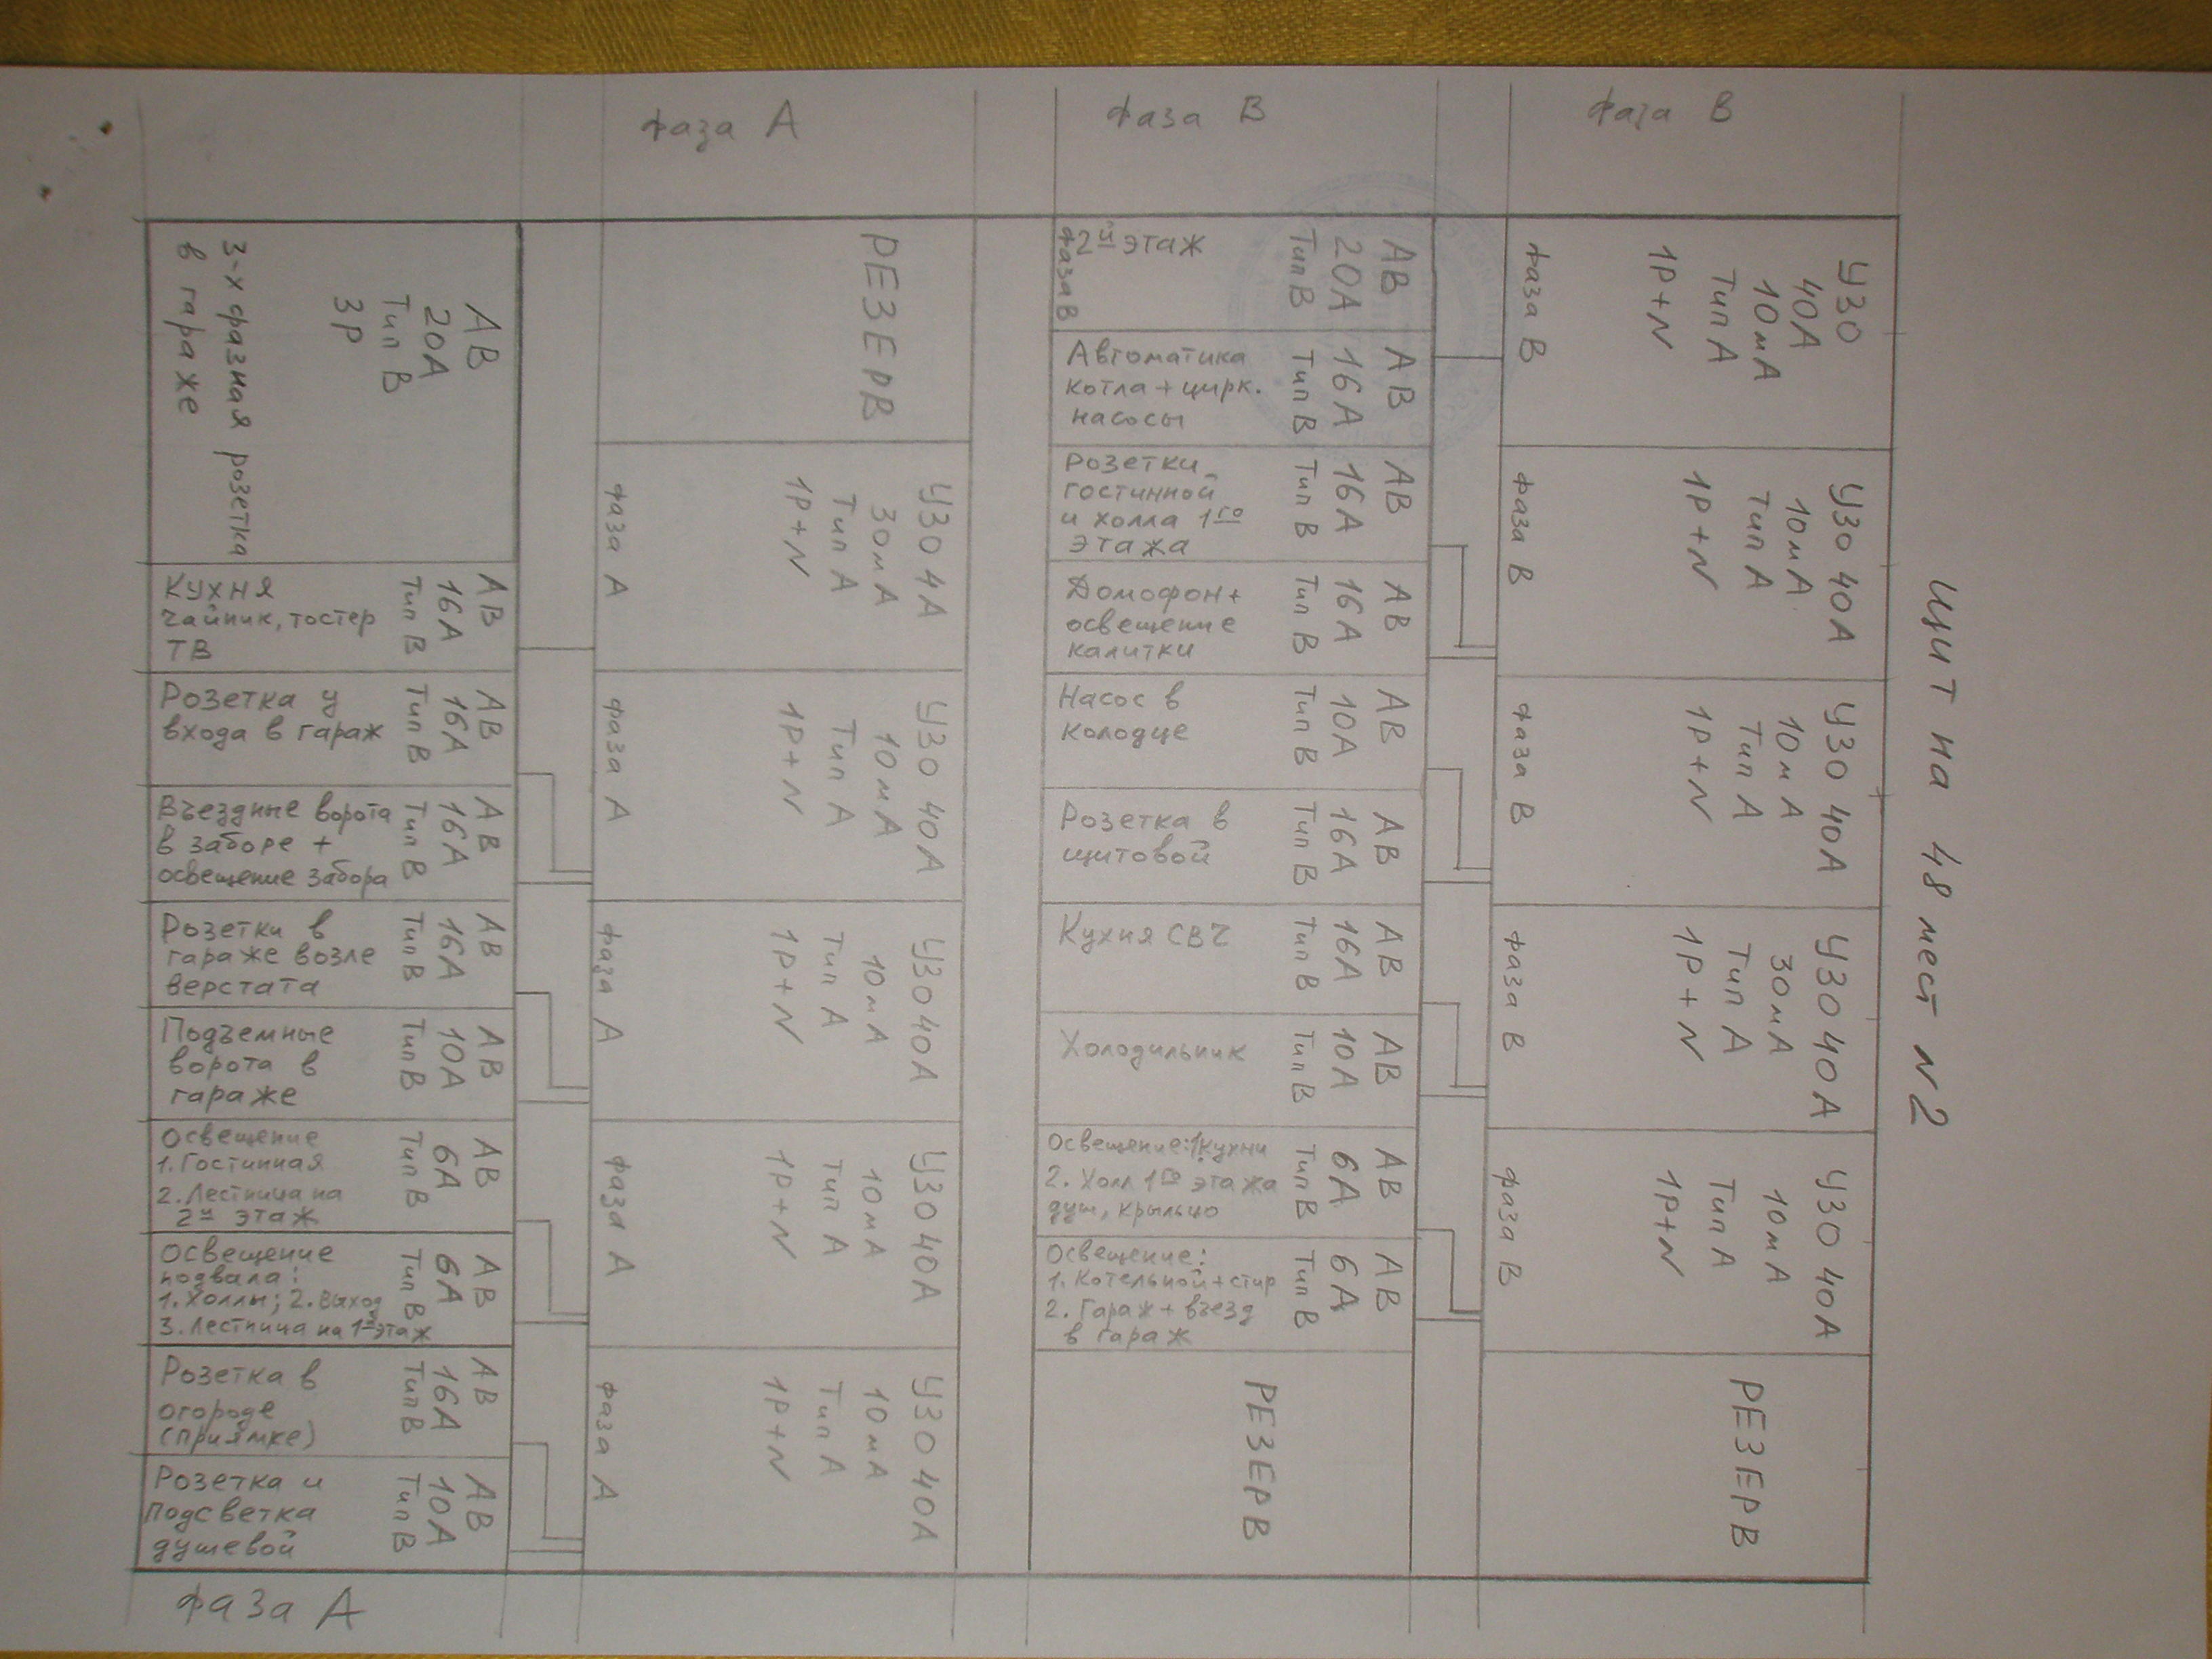 Щит на 48 мест N2
фаза В
УЗО
40А
10мА
Тип А
1P+N
фаза В
УЗО 40А
10мА
Тип А
1P+N
фаза В
УЗО 40А
10мА
Тип А
1P+N
фаза В
УЗО 40А
30мА
Тип А
1P+N
фаза В
УЗО 40А
10мА
Тип А
1P+N
фаза В
РЕЗЕРВ
фаза В
АВ
20А
Тип В
2й этаж
фаза В
АВ
16А
Тип В
Автоматика
котла + цирк.
насосы
АВ
16А
Тип В
Розетки
гостинной
и холла 1го
этажа
АВ
16А
Тип В
Домофон+
освещение
калитки
АВ
10А
Тип В
Насос в
колодце
АВ
16А
Тип В
Розетка в
щитовой
АВ
16А
Тип В
Кухня СВЧ
АВ
10А
Тип В
Холодильник
АВ
6А
Тип В
Освещение: 1. Кухни
2. Холл 1го этажа
душ, крыльцо
АВ
6А
Тип В
Освещение:
1. Котельной + стир
2. Гараж + въезд
в гараж
РЕЗЕРВ
фаза А
РЕЗЕРВ
УЗО 4А
30мА
Тип А
1P+N
фаза А
УЗО 40А
10мА
Тип А
1P+N
фаза А
УЗО 40А
10мА
Тип А
1P+N
фаза А
УЗО 40А
10мА
Тип А
1P+N
фаза А
УЗО 40А
10мА
Тип А
1P+N
фаза А
АВ
20А
Тип В
3P
3-х фазная розетка
в гараже
АВ
16А
Тип В
Кухня
чайник, тостер
ТВ
АВ
16А
Тип В
Розетка у
входа в гараж
АВ
16А
Тип В
Въездные ворота
в заборе +
освещение забора
АВ
16А
Тип В
Розетки в
гараже возле
верстата
АВ
10А
Тип В
Подъемные
ворота в
гараже
АВ
6А
Тип В
Освещение
1. Гостинная
2. Лестница на
2й этаж
АВ
6А
Тип В
Освещение
подвала:
1. Холлы; 2. Выход
3. Лестница на 1й этаж
АВ
16А
Тип В
Розетка в
огороде
(приямке)
АВ
10А
Тип В
Розетка и
подсветка
душевой
фаза А